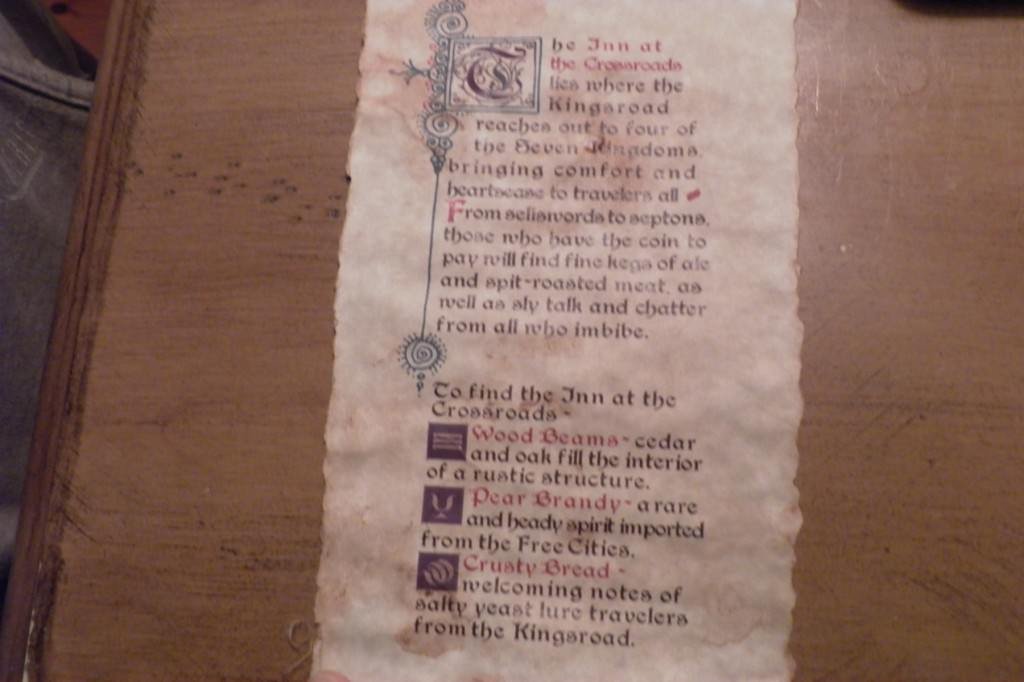 The Inn at
the Crossroads
lies where the
Kingsroad
reaches out to four of
the Seven Kingdoms,
bringing comfort and
heartsease to travelers all
From sellswords to septons,
those who have the coin to
pay will find fine kegs of ale
and spit-roasted meat, as
well as sly talk and chatter
from all who imbibe.
To find the Inn at the
Crossroads -
Wood Beams - cedar
and oak fill the interior
of a rustic structure.
Pear Brandy - a rare
and heady spirit imported
from the Free Cities.
Crusty Bread -
welcoming notes of
salty yeast lure travelers
from the Kingsroad.